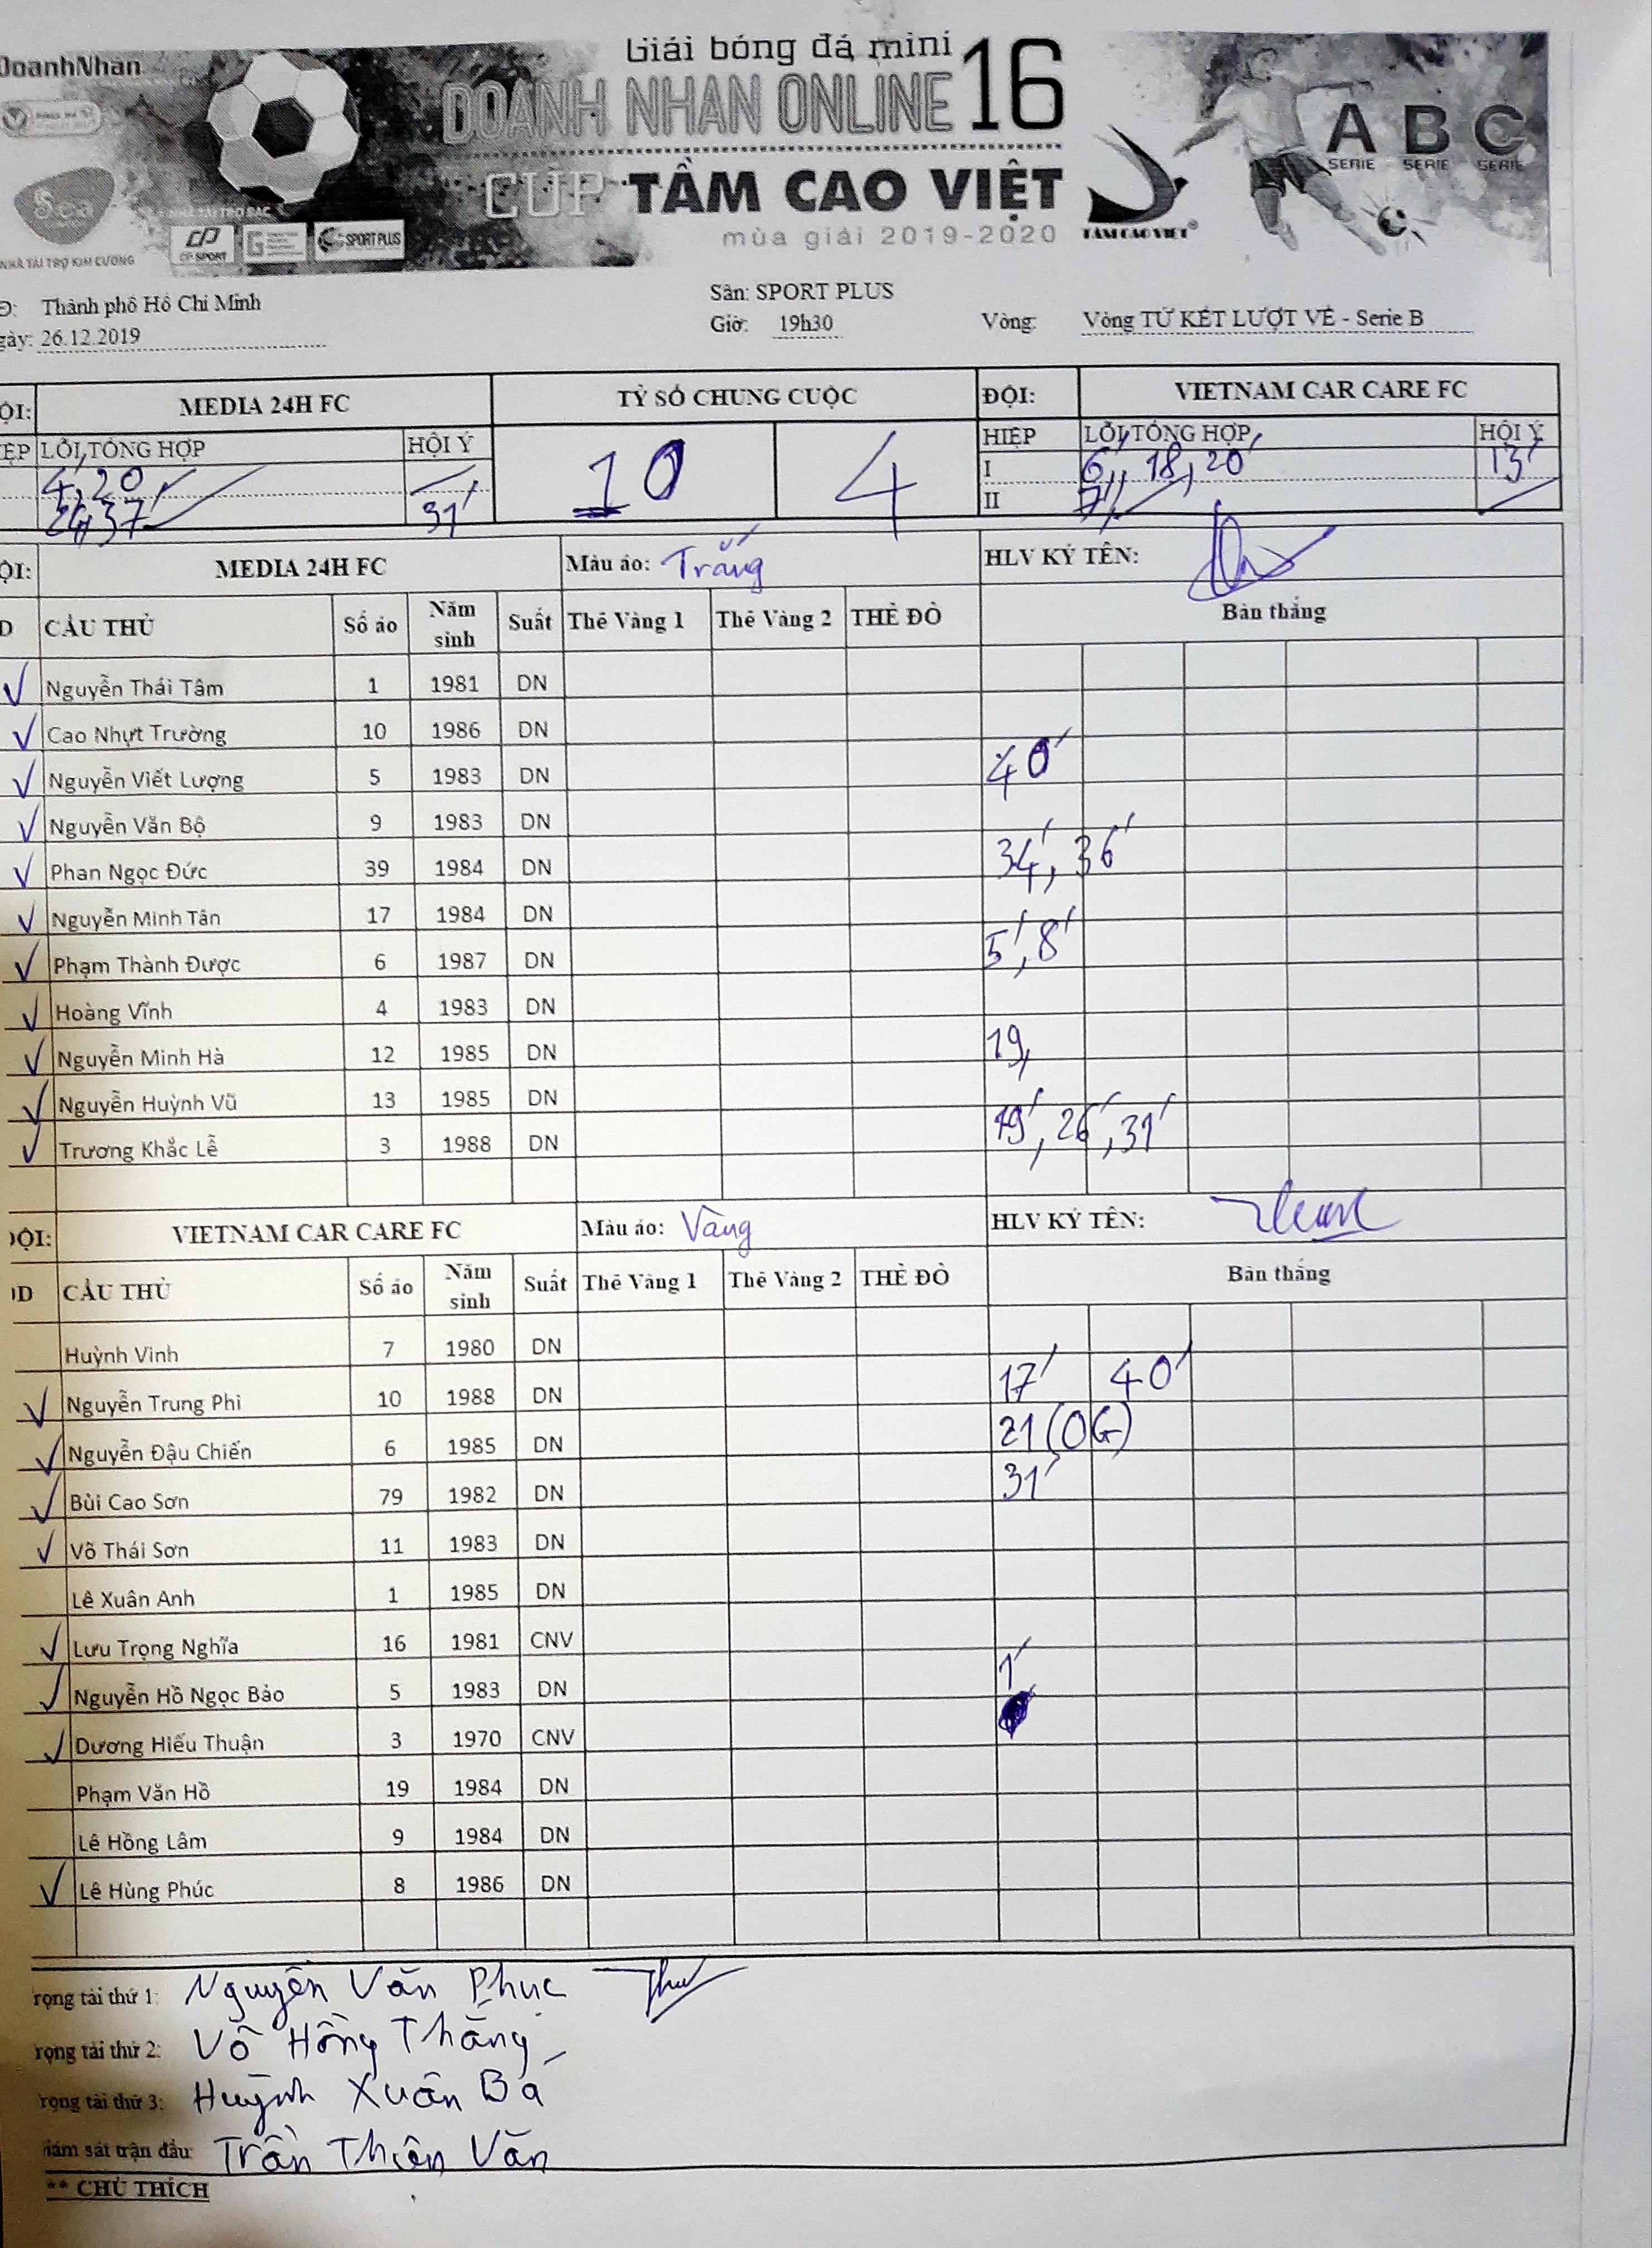 DoanhNhan
Giải bóng đá mini
DOANH NHAN ONLINE 16
CÚP TẦM CAO VIỆT
mùa giải 2019-2020
TẦM CAO VIỆT
A B C
SERIE SERIE SERIE
Sea
NHÀ TÀI TRỢ BẠC
CP SPORT
SPORT PLUS
NHÀ TÀI TRỢ KIM CƯƠNG
Thành phố Hồ Chí Minh
Sân: SPORT PLUS
gày: 26.12.2019
Giờ: 19h30
Vòng: Vòng TỨ KẾT LƯỢT VỀ - Serie B
ỘI: MEDIA 24H FC TỶ SỐ CHUNG CUỘC ĐỘI: VIETNAM CAR CARE FC
ỆP LỖI TỔNG HỢP HỘI Ý 10 4 HIỆP LỖI TỔNG HỢP HỘI Ý
4, 20 I 6', 18, 20' 13'
37' 31' II 7'
ỘI: MEDIA 24H FC Màu áo: Trắng HLV KÝ TÊN:
D CẦU THỦ Số áo Năm sinh Suất Thẻ Vàng 1 Thẻ Vàng 2 THẺ ĐỎ Bàn thắng
Nguyễn Thái Tâm 1 1981 DN
Cao Nhựt Trường 10 1986 DN
Nguyễn Viết Lượng 5 1983 DN 40'
Nguyễn Văn Bộ 9 1983 DN
Phan Ngọc Đức 39 1984 DN 34', 36'
Nguyễn Minh Tân 17 1984 DN
Phạm Thành Được 6 1987 DN 5', 8'
Hoàng Vĩnh 4 1983 DN
Nguyễn Minh Hà 12 1985 DN 19,
Nguyễn Huỳnh Vũ 13 1985 DN
Trương Khắc Lễ 3 1988 DN 19', 26', 31'
ĐỘI: VIETNAM CAR CARE FC Màu áo: Vàng HLV KÝ TÊN:
D CẦU THỦ Số áo Năm sinh Suất Thẻ Vàng 1 Thẻ Vàng 2 THẺ ĐỎ Bàn thắng
Huỳnh Vinh 7 1980 DN
Nguyễn Trung Phi 10 1988 DN 17' 40'
Nguyễn Đậu Chiến 6 1985 DN 21 (OG)
Bùi Cao Sơn 79 1982 DN 31'
Võ Thái Sơn 11 1983 DN
Lê Xuân Anh 1 1985 DN
Lưu Trọng Nghĩa 16 1981 CNV
Nguyễn Hồ Ngọc Bảo 5 1983 DN 1'
Dương Hiếu Thuận 3 1970 CNV
Phạm Văn Hồ 19 1984 DN
Lê Hồng Lâm 9 1984 DN
Lê Hùng Phúc 8 1986 DN
rọng tài thứ 1: Nguyễn Văn Phục
rọng tài thứ 2: Võ Hồng Thắng
rọng tài thứ 3: Huỳnh Xuân Bá
iám sát trận đấu: Trần Thiên Văn
** CHÚ THÍCH